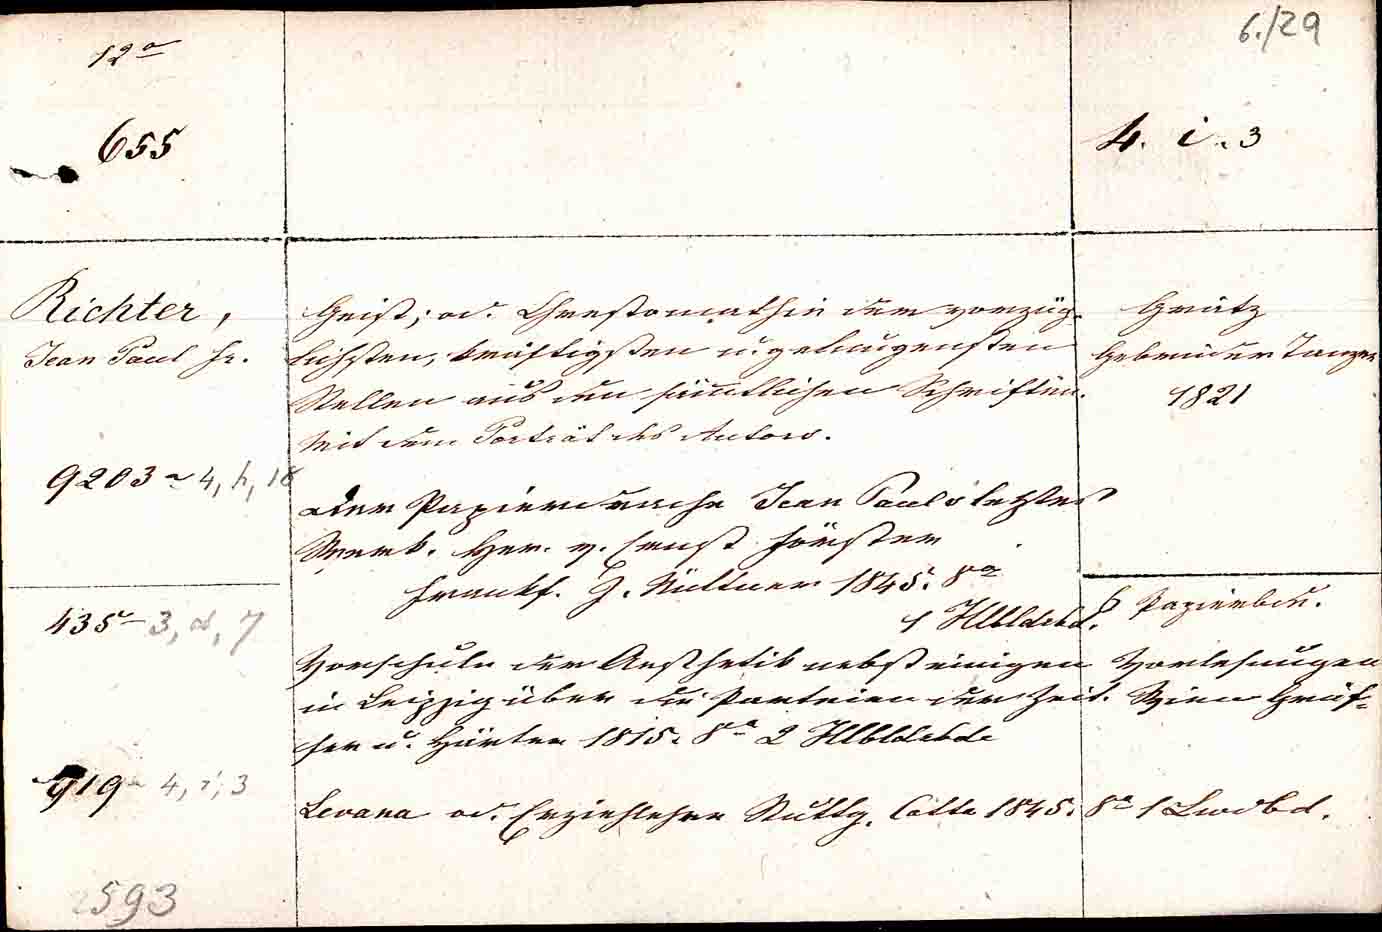 12°
6./29
655
4. i. 3
Richter,
Jean Paul Fr.
Geist; od. Chrestomathie der vorzüg-
lichsten, kräftigsten u. gelungensten
Stellen aus den sämtlichen Schriften.
Mit dem Porträt des Autors.
Grätz
Gebrüder Tanzer
1821
9203 4, h, 18
Der Papierdrache Jean Paul's letztes
Werk. Her. v. Ernst Förster
Frankf. J. Rüttner 1845. 8°
1 Hlbldrbd.
6 Papierbde.
435 - 3, d, 7
Vorschule der Aesthetik nebst einigen Vorlesungen
in Leipzig über die Parteien der Zeit. Wien Gräf-
fer u. Härter 1815. 8° 2 Hlbldrbde
919 - 4, i, 3
Levana od. Erziehlehre Stuttg. Cotta 1845. 8° 1 Lwdbd.
2593